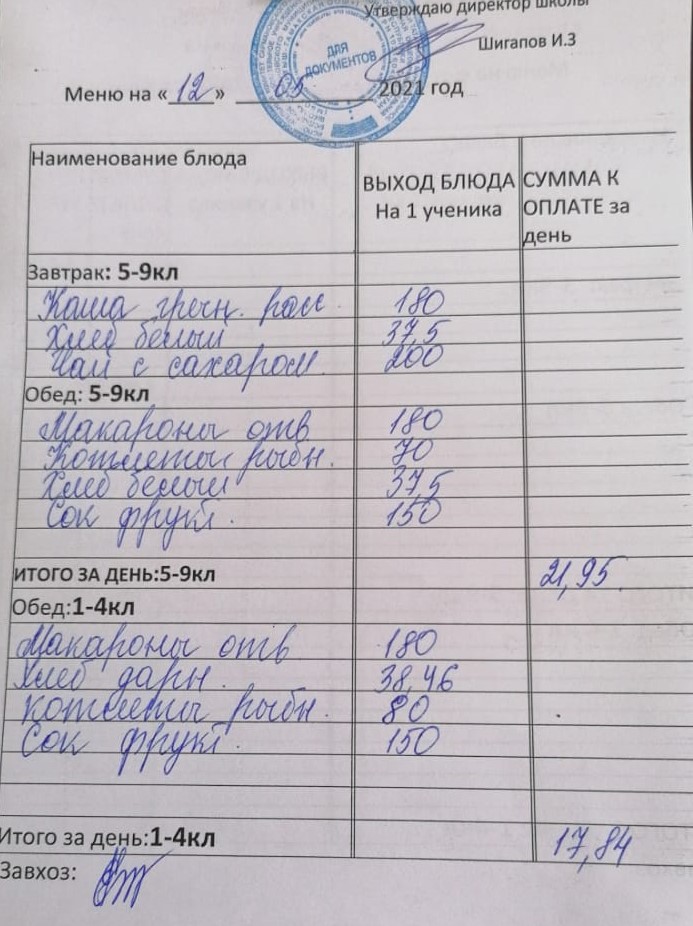 Утверждаю директор школы
Шигапов И.З
ДЛЯ ДОКУМЕНТОВ
Меню на «12» 05 2021 год
Наименование блюда ВЫХОД БЛЮДА На 1 ученика СУММА К ОПЛАТЕ за день
Завтрак: 5-9кл
Каша гречн. расс 180
Хлеб белый 37,5
Чай с сахаром 200
Обед: 5-9кл
Макароны отв 180
Котлеты рыбн. 70
Хлеб белый 37,5
Сок фрукт. 150
ИТОГО ЗА ДЕНЬ:5-9кл 21,95
Обед:1-4кл
Макароны отв 180
Хлеб дарн. 38,46
Котлеты рыбн. 80
Сок фрукт. 150
Итого за день:1-4кл 17,84
Завхоз: